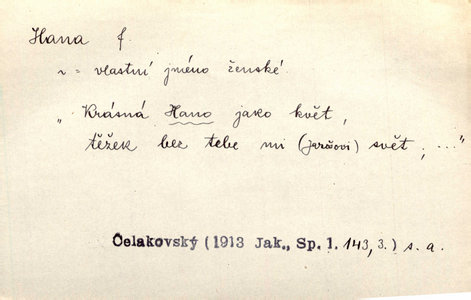 Hana f.
~ = vlastní jméno ženské.
„Krásná Hano jako květ,
těžek bez tebe mi (Jarošovi) svět, ..."
Čelakovský (1913 Jak., Sp. 1. 143, 3.) s. a.